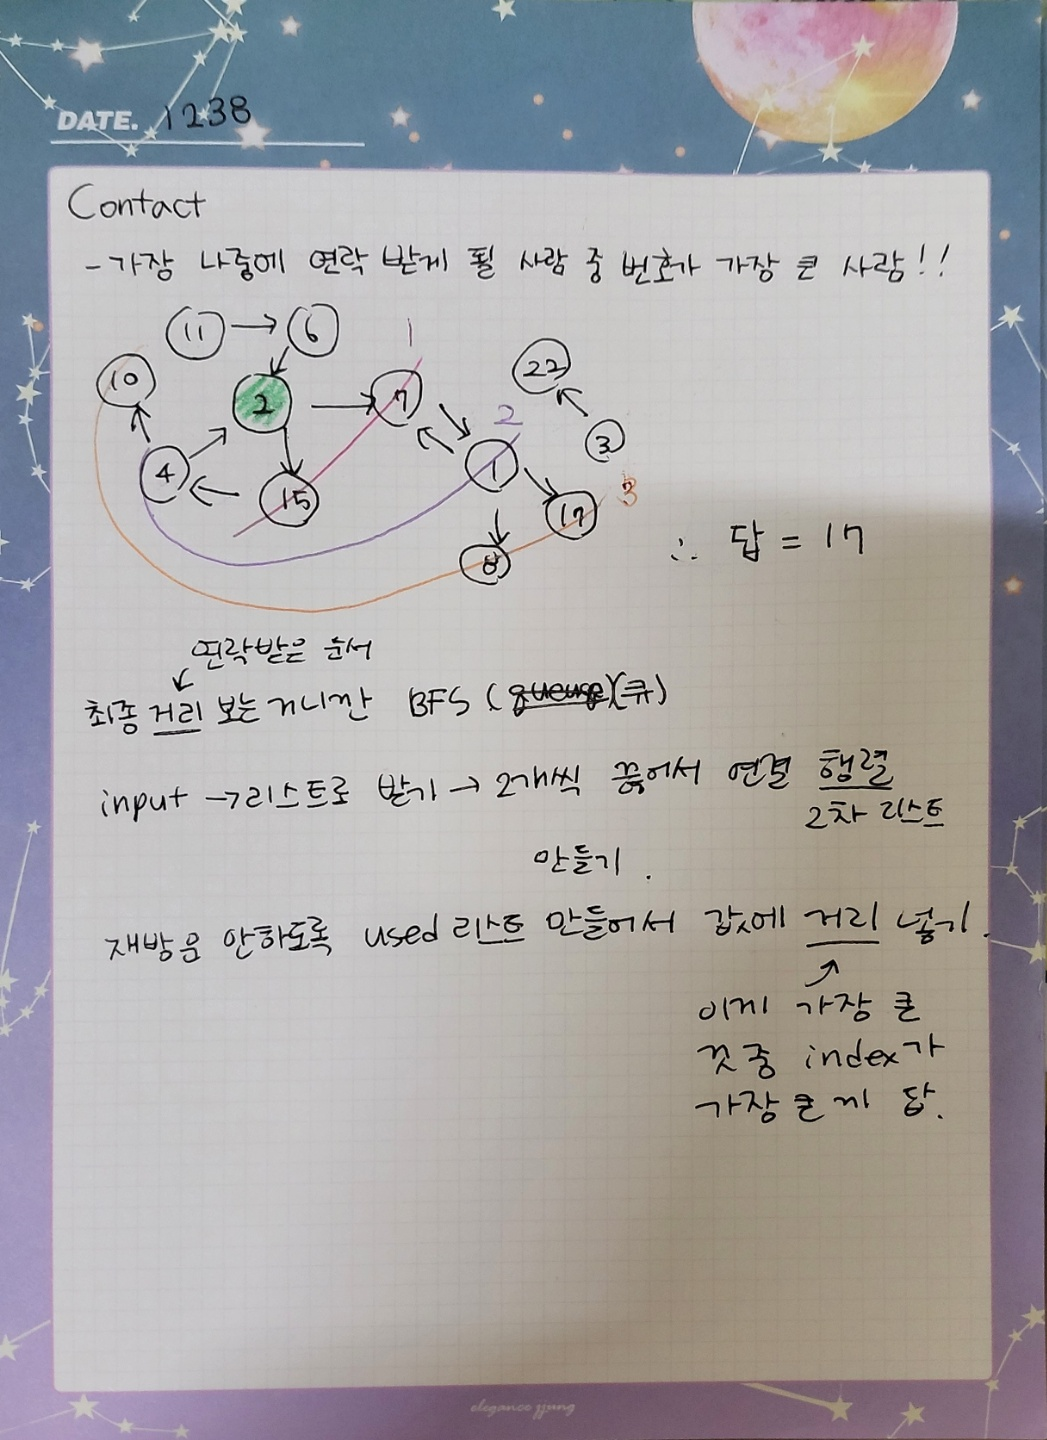 DATE. 1238
Contact
- 가장 나중에 연락 받게 될 사람 중 번호가 가장 큰 사람!!
11 → 6
10
2
7
1
22
4
15
1
2
3
8
17
3
∴ 답 = 17
연락받은 순서
최종 거리 보는 거니깐 BFS (큐)
input → 리스트로 받기 → 2개씩 끊어서 연결 행렬
2차 리스트
만들기.
재방문 안하도록 used 리스트 만들어서 값에 거리 넣기.
이게 가장 큰
것중 index가
가장 큰게 답.
elegance jjung